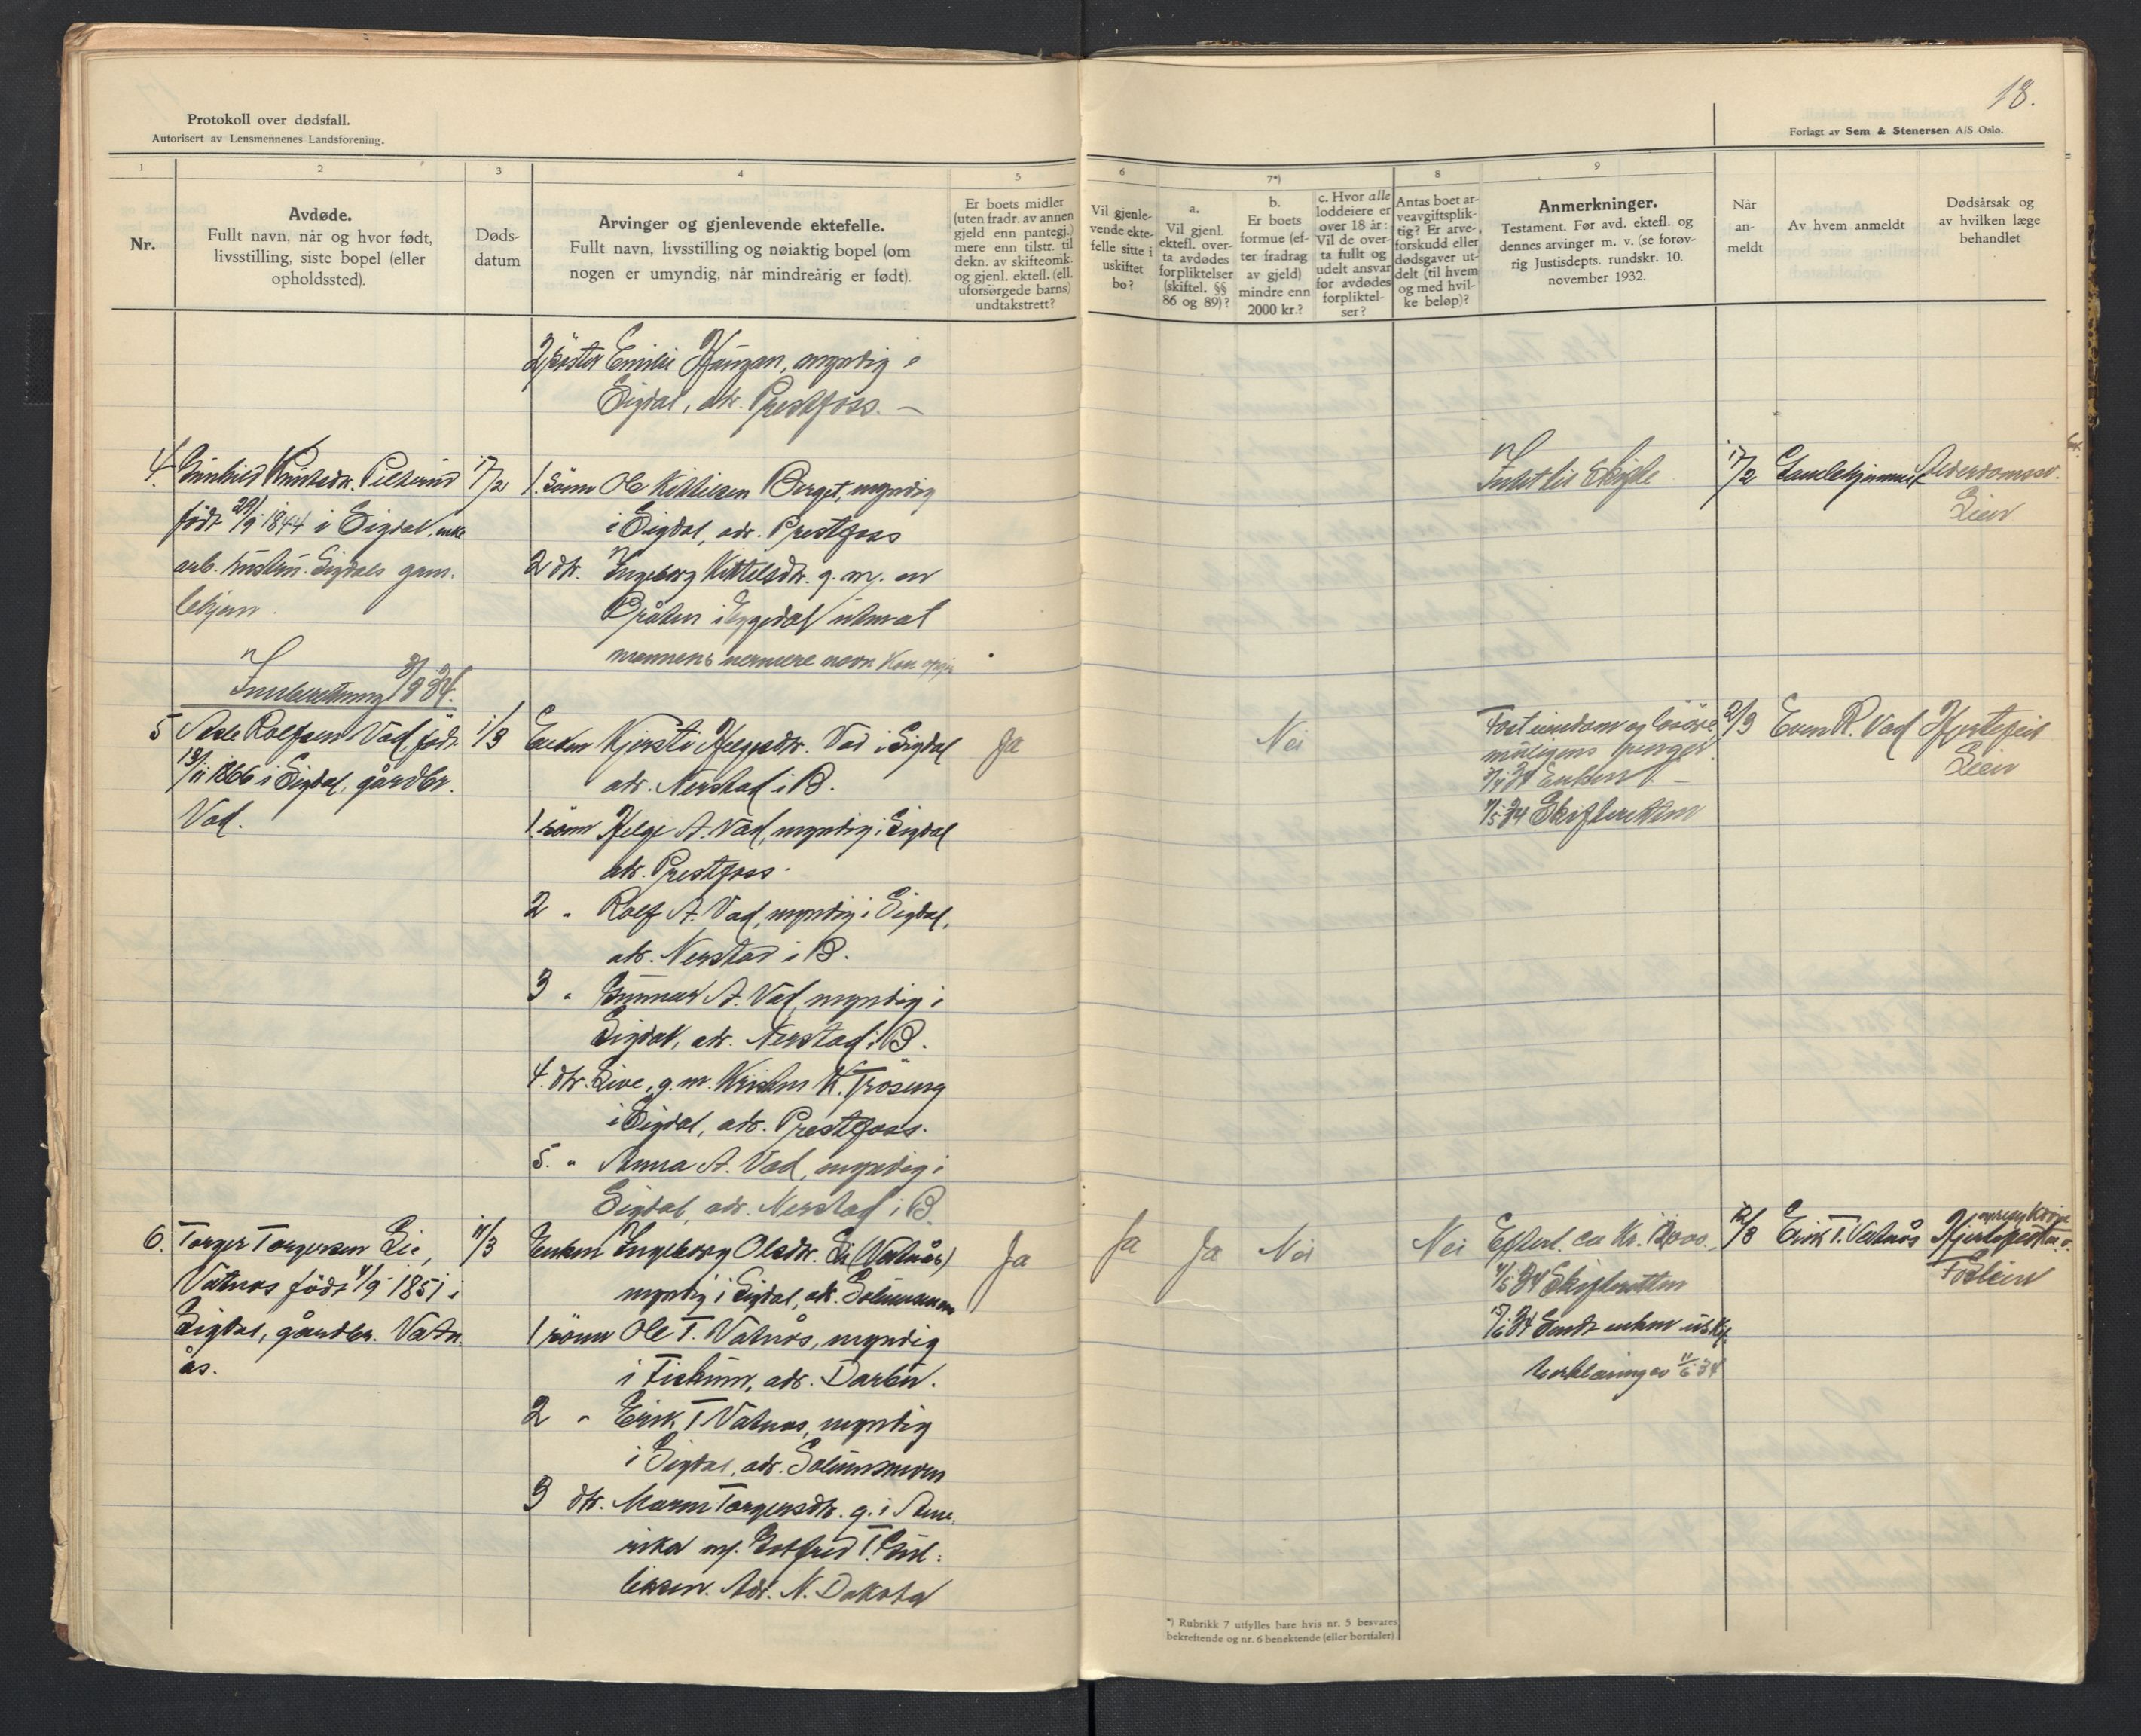 18.
Protokoll over dødsfall.
Autorisert av Lensmennenes Landsforening.
Forlagt av Sem & Stenersen A/S Oslo.
1
2
3
4
5
6
7*)
8
9
Nr.
Avdøde.
Fullt navn, når og hvor født,
livsstilling, siste bopel (eller
opholdssted).
Døds-
datum
Arvinger og gjenlevende ektefelle.
Fullt navn, livsstilling og nøiaktig bopel (om
nogen er umyndig, når mindreårig er født).
Er boets midler
(uten fradr. av annen
gjeld enn pantegj.)
mere enn tilstr. til
dekn. av skifteomk.
og gjenl. ektef. (ell.
uforsørgede barns)
undtakstrett?
Vil gjenle-
vende ekte-
felle sitte i
uskiftet
bo?
a.
Vil gjenl.
ektefl. over-
ta avdødes
forpliktelser
(skiftel. §§
86 og 89)?
b.
Er boets
formue (ef-
ter fradrag
av gjeld)
mindre enn
2000 kr.?
c. Hvor alle
loddeiere er
over 18 år:
Vil de over-
ta fullt og
udelt ansvar
for avdødes
forpliktel-
ser?
Antas boet ar-
veavgiftsplik-
tig? Er arve-
forskudd eller
dødsgaver ut-
delt (til hvem
og med hvil-
ke beløp)?
Anmerkninger.
Testament. Før avd. ektefl. og
dennes arvinger m. v. (se forøv-
rig Justisdepts. rundskr. 10.
november 1932.
Når
an-
meldt
Av hvem anmeldt
Dødsårsak og
av hvilken læge
behandlet
2 søster Emilie Haugan, myndig i
Sigdal, adr. Prestfoss. —
4. Gunhild Knutsdtr. 17/2
født 29/9 1844 i Sigdal, enke
arb. Sigdals gam-
lehjem.
Innberetning 3/3 34.
1. sønn Ole Kittilsen Berget, myndig
i Sigdal, adr. Prestfoss
2 dtr. Ingeborg Kittelsdtr. g. m. en
Bråten i Eggedal
mannens nermere navn
Intet til Skifte
17/2 Gamlehjemmet Alderdomssv.
Lien
5 Asle Rolfsen Vad, født 1/3
13/11 1866 i Sigdal, gårdbr.
Vad.
Enken Kjersti Helgesdtr. Vad i Sigdal
adr. Nerstad i B.
1 sønn Helge A. Vad, myndig i Sigdal
adr. Prestfoss.
2 " Rolf A. Vad, myndig i Sigdal,
adr. Nerstad i B.
3 " Gunnar A. Vad, myndig i
Sigdal, adr. Nerstad i B.
4. dtr. Live, g. m. Kristen K. Frøseng
i Sigdal, adr. Prestfoss.
5. " Anna A. Vad, myndig i
Sigdal, adr. Nerstad i B.
Ja
Nei
Fast eiendom og løsøre,
muligens penger.
Enken —
4/5 34 Skifteretten
2/3 Even R. Vad Hjertefeil
Lien
6. Torger Torgersen Lie, 11/3
Vatnås født 4/9 1851 i
Sigdal, gårdbr. Vatn-
ås.
Enken Ingeborg Olsdtr. Li (Vatnås)
myndig i Sigdal, adr. Solumsmoen
1 sønn Ole T. Vatnås, myndig
i Fiskum, adr. Darbu.
2 " Erik T. Vatnås, myndig
i Sigdal, adr. Solumsmoen
3 dtr. Maren Torgersdtr. g. i Ame-
rika m.
Adr. N. Dakota
Ja
Ja
Ja
Nei
Nei
Efterl. ca Kr.
4/5 34 Skifteretten
15/6 34 Sendt enken uskif.
erklæring av 11/6 34
12/3 Erik T. Vatnås
*) Rubrikk 7 utfylles bare hvis nr. 5 besvares
bekreftende og nr. 6 benektende (eller bortfaler)